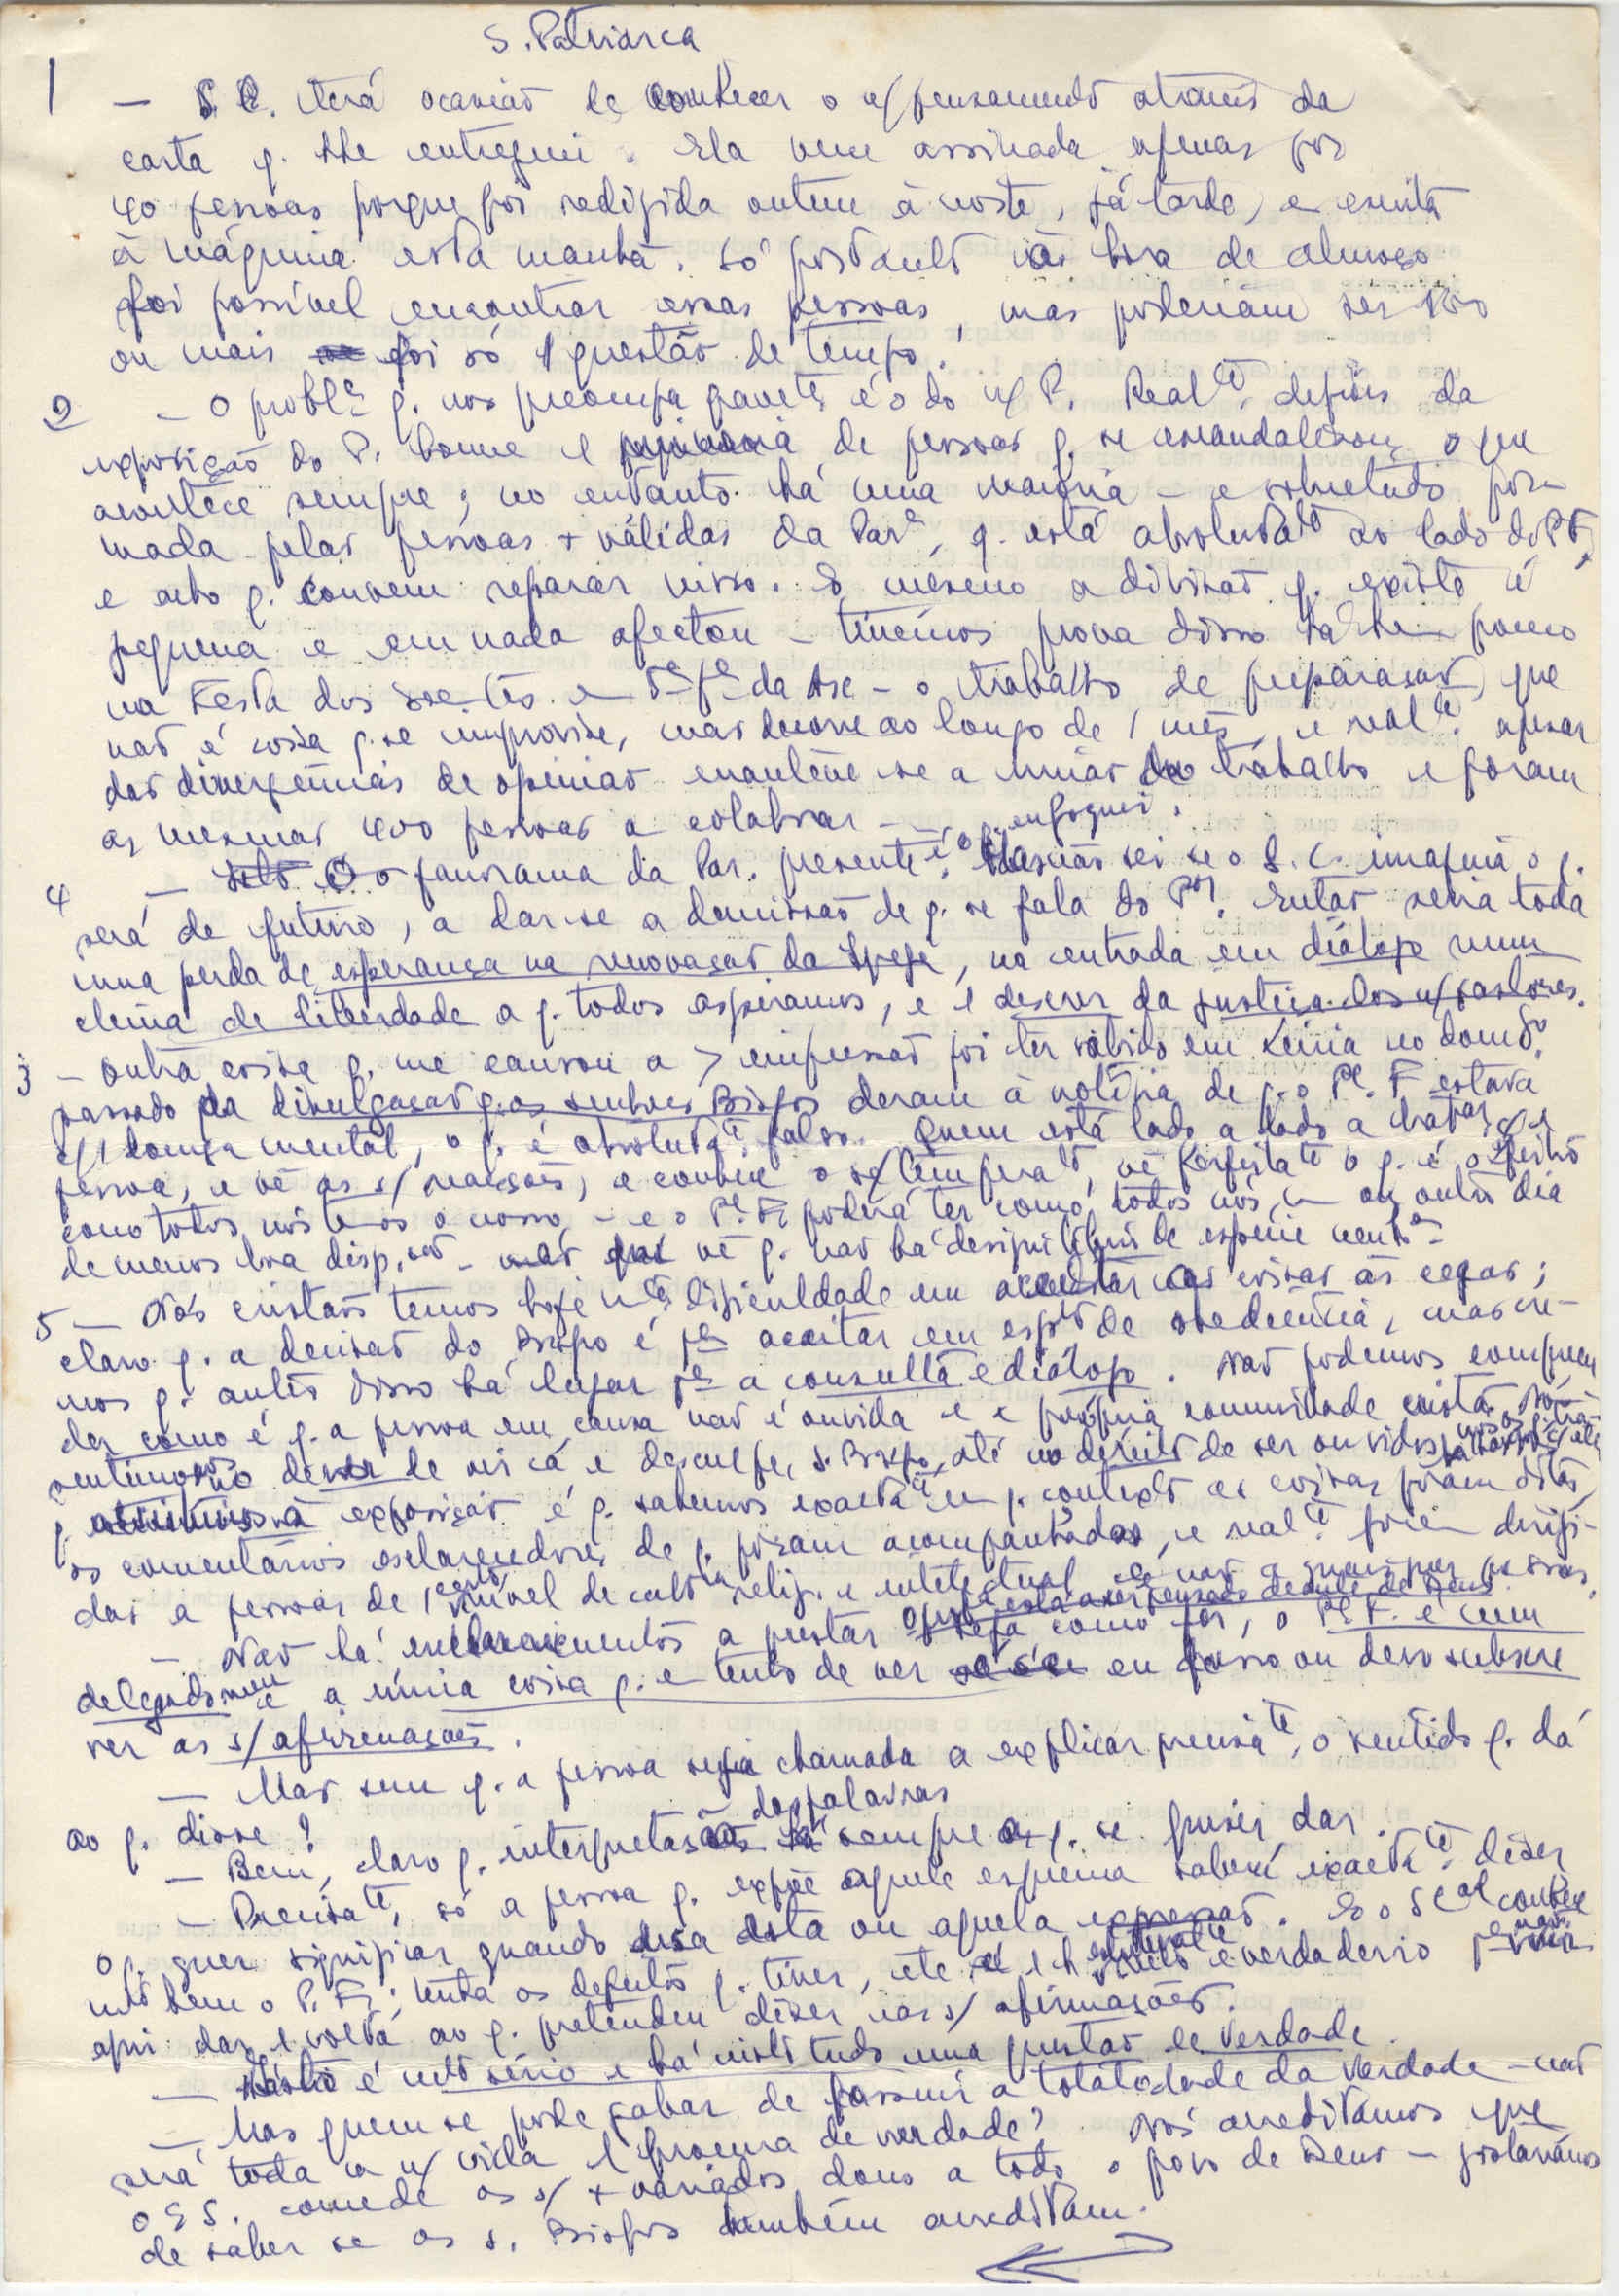 S. Patriarca
1
— S. E. terá ocasião de conhecer o n/ pensamento através da
carta q. lhe entreguei. Ela vem assinada apenas por
40 pessoas porque foi redigida ontem à noite, já tarde, e escrita
à máquina esta manhã. Só portanto à hora de almoço
foi possível encontrar essas pessoas, mas poderiam ser
ou mais foi só 1 questão de tempo.
2 — O probl.ª q. nos preocupa gravete é o do n/ P. Realte, depois da
exposição do P. houve 1 minoria de pessoas q. se escandalizou, o que
acontece sempre; no entanto há uma maioria — e sobretudo for-
mada pelas pessoas + válidas da Par.ª, q. está absolutate ao lado do P. F.,
e acho q. convém reparar nisso. E mesmo a divisão q. existe é
pequena e em nada afectou — tivemos prova disso há pouco
na Festa dos e 5ª fª da Asc — o trabalho de preparação, que
não é coisa q. se improvise, mas decorre ao longo de 1 mês, e realte. apesar
das divergências de opinião manteve-se a união de trabalho e foram
as mesmas 400 pessoas a colaborar — enfoquei.
4 — o panorama da Par. presente é o q. Mas não sei se o S. C. imagina o q.
será de futuro, a dar-se a demissão de q. se fala do Pr. Então seria toda
uma perda de esperança na renovação da Igreja, na entrada em diálogo num
clima de liberdade a q. todos aspiramos, e 1 descrer da justiça dos n/ pastores.
3 — Outra coisa q. me causou a > impressão foi ter sabido em no domº
passado da divulgação q. os senhores Bispos deram à notícia de q. o Pe. F estava
c/ 1 doença mental, o q. é absolutate falso. Quem está lado a lado a trabar c/ 1
pessoa, e vê as s/ reacções, e conhece o s/ temperato, vê perfeitate o q. é o feitio
como todos nós temos o nosso — e o Pe. F. poderá ter como todos nós um ou outro dia
de menos boa disp.ção — mas vê q. não há desiquilíbrio de espécie nenhª
5 — Nós cristãos temos hoje mta dificuldade em aceitar as coisas às cegas;
claro q. a decisão do Bispo é pª aceitar em espto de obediência, mas cre-
mos q. antes disso há lugar pª a consulta e diálogo. Não podemos compreen
der como é q. a pessoa em causa não é ouvida e a própria comunidade cristã. Nós
sentimos o dever de vir cá e desculpe, S. Bispo, até no direito de ser ouvidos
q. assistimos à exposição é q. sabemos exactate em q. contexto as coisas foram ditas,
os comentários esclarecedores de q. foram acompanhadas, e realte foram dirigi-
das a pessoas de 1 certo nível de cultª relig. e intelectual e não a quaisquer pessoas.
— Não há esclarecimentos a prestar já está a ser pensado diante de Deus. Seja como for, o Pe. F. é um
delegado meu e a única coisa q. eu tenho de ver eu posso ou devo subscre
ver as s/ afirmações.
— Mas sem q. a pessoa seja chamada a explicar precisate, o sentido q. dá
ao q. disse?
— Bem, claro q. interpretação das palavras há sempre a q. se quiser dar.
— Precisate, só a pessoa q. expôe aquele esquema saberá exactate dizer
o q. quer significar quando usa esta ou aquela expressão. E o S. Cal conhece
mto bem o P. F.; tenha os defeitos q. tiver, etc é 1 h. é verdadeiro pª não vir
aqui dar 1 volta ao q. pretendeu dizer nas s/ afirmações.
— Isto é mto sério e há nisto tudo uma questão de Verdade.
— Mas quem se pode gabar de possuir a totalidade da Verdade — não
será toda a n/ vida 1 procura de verdade? Nós acreditamos que
o E S. concede os s/ + variados dons a todo o povo de Deus — gostaríamos
de saber se os s. Bispos também acreditam.